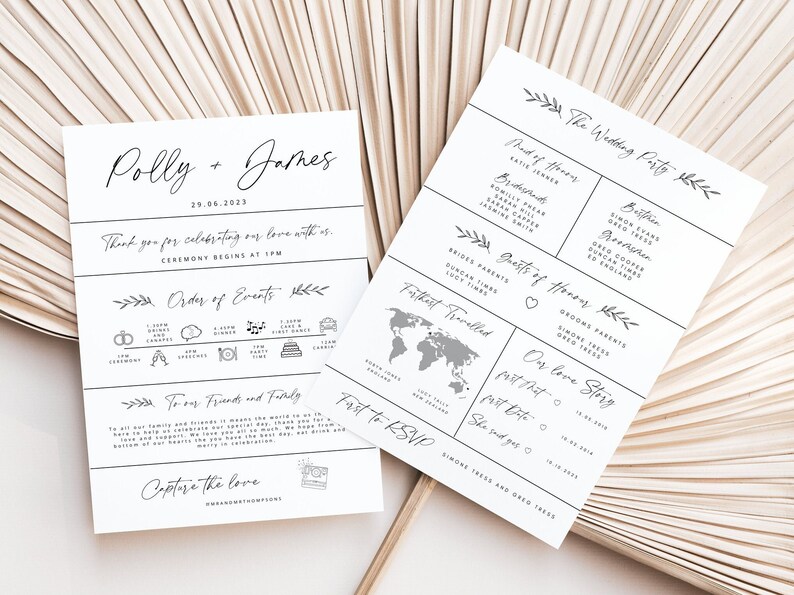 Polly + James
29.06.2023
Thank you for celebrating our love with us.
CEREMONY BEGINS AT 1PM
Order of Events
1PM
CEREMONY
1.30PM
DRINKS
AND
CANAPES
4PM
SPEECHES
4.45PM
DINNER
7PM
PARTY
TIME
7.30PM
CAKE &
FIRST DANCE
12AM
To our Friends and Family
To all our family and friends it means the world to us th
here to help us celebrate our special day, thank you for a
love and support. We love you all so much. We hope from
bottom of our hearts the you have the best day, eat drink and
merry in celebration.
Capture the love
@MRANDMRTHOMPSONS
The Wedding Party
Maid of Honour
KATIE JENNER
Bridesmaids
ROMILLY PHEAR
SARAH HILL
SARAH CAPPER
JASMINE SMITH
Bestmen
SIMON EVANS
GREG TRESS
Groomsmen
GREG COOPER
DUNCAN TIMBS
ED ENGLAND
Guests of Honour
BRIDES PARENTS
DUNCAN TIMBS
LUCY TIMBS
GROOMS PARENTS
SIMONE TRESS
GREG TRESS
Furthest Travelled
ROBYN JONES
ENGLAND
LUCY TALLY
NEW ZEALAND
Our love Story
First Met
15.05.2010
First Date
10.02.2014
She said yes
10.10.2023
First to RSVP
SIMONE TRESS AND GREG TRESS